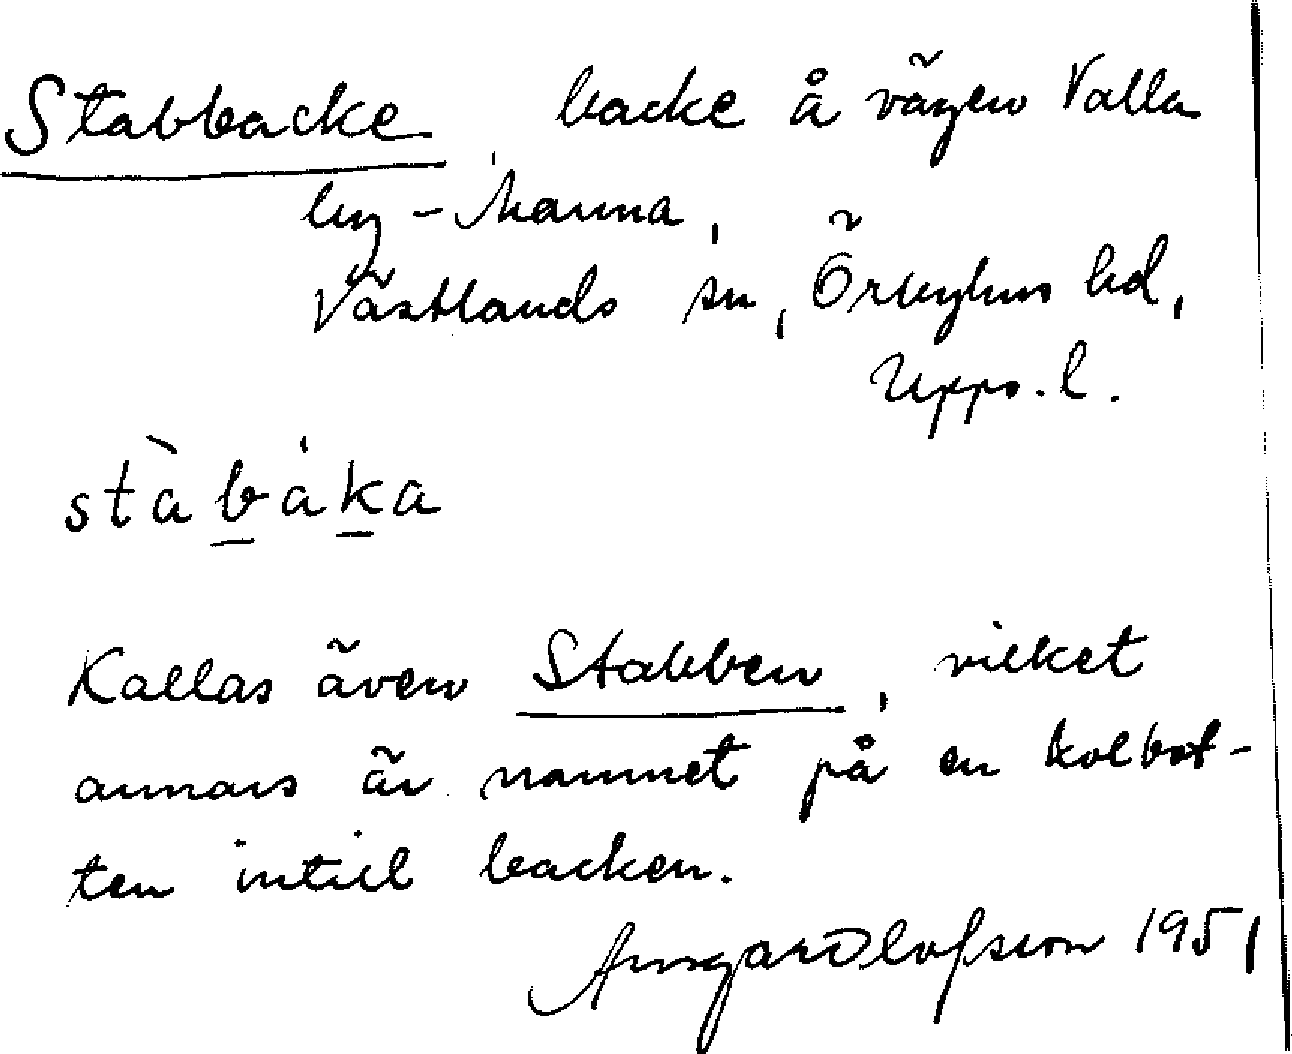 Stabbacke, backe å vägen Valla
by - Marma,
Västlands sn, Örbyhus hd,
Upps. l.
stàbáka
Kallas även Stabben, vilket
annars är namnet på en kolbot-
ten intill backen.
Olofsson 1951